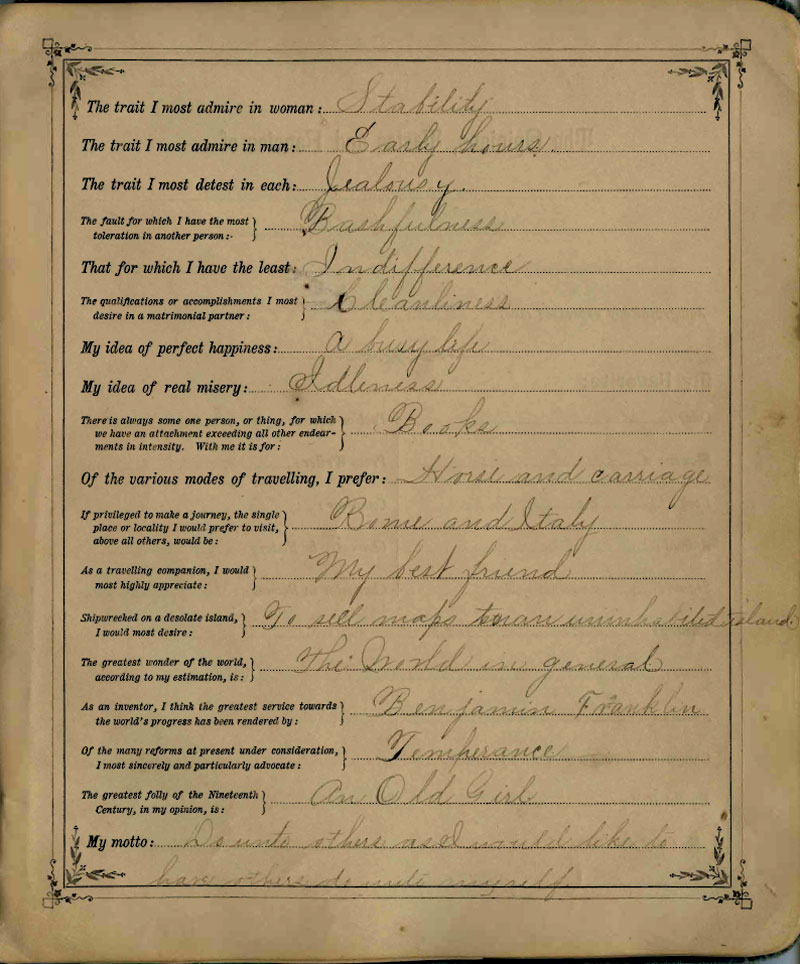 The trait I most admire in woman: Stability
The trait I most admire in man: Early hours.
The trait I most detest in each: Jealousy.
The fault for which I have the most
toleration in another person:- Bashfulness
That for which I have the least: Indifference
The qualifications or accomplishments I most
desire in a matrimonial partner: Cleanliness
My idea of perfect happiness: A busy life
My idea of real misery: Idleness
There is always some one person, or thing, for which
we have an attachment exceeding all other endear-
ments in intensity. With me it is for: Books
Of the various modes of travelling, I prefer: Horse and carriage
If privileged to make a journey, the single
place or locality I would prefer to visit,
above all others, would be: Rome and Italy
As a travelling companion, I would
most highly appreciate: My best friend
Shipwrecked on a desolate island,
I would most desire: To sell maps to an uninhabited island.
The greatest wonder of the world,
according to my estimation, is: The World in general
As an inventor, I think the greatest service towards
the world's progress has been rendered by: Benjamin Franklin
Of the many reforms at present under consideration,
I most sincerely and particularly advocate: Temperance
The greatest folly of the Nineteenth
Century, in my opinion, is: An Old Girl.
My motto: Do unto others as I would like to
have others do unto myself